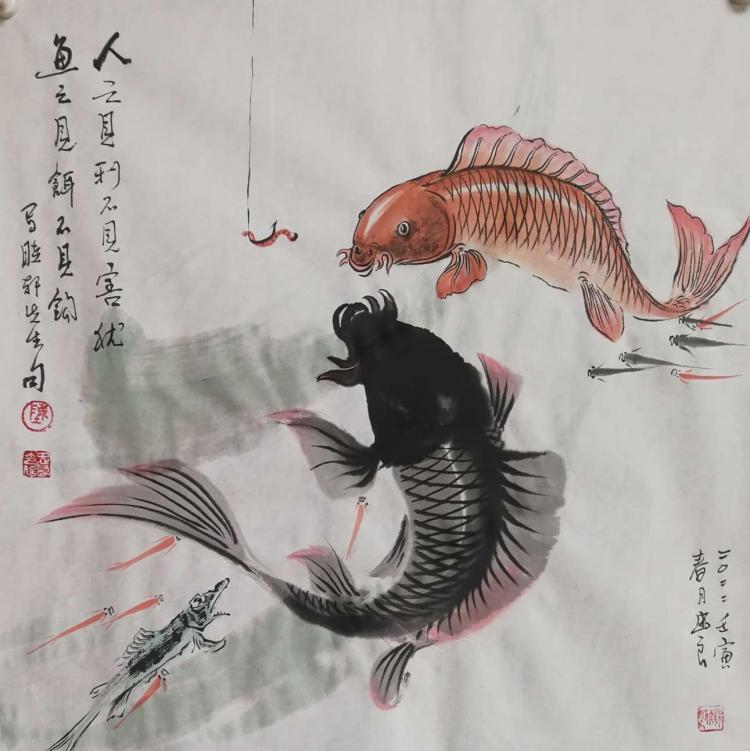 人之見利不見害犹
魚之見餌不見鈎
写睦轩先生句
二〇二二壬寅
春月志良